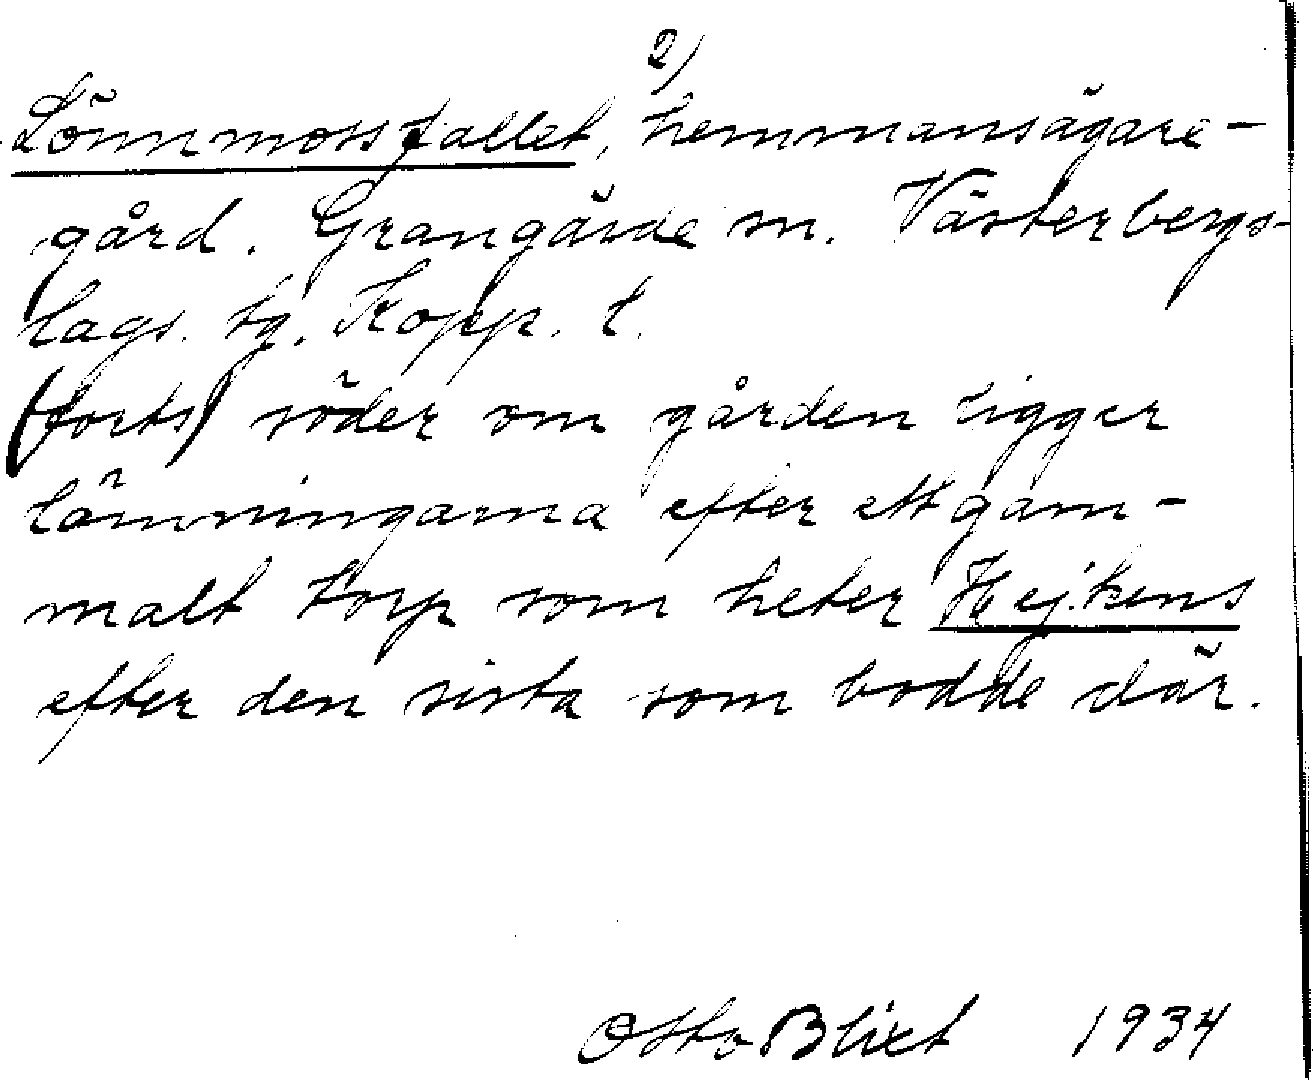 2)
Lönnmossfallet, hemmansägare-
gård. Grangärde sn. Västerbergs-
lags. tg. Kopp. l.
(forts) söder om gården ligger
lämningarna efter ett gam-
malt torp som heter Hejkens
efter den sista som bodde där.
Otto Blixt 1934